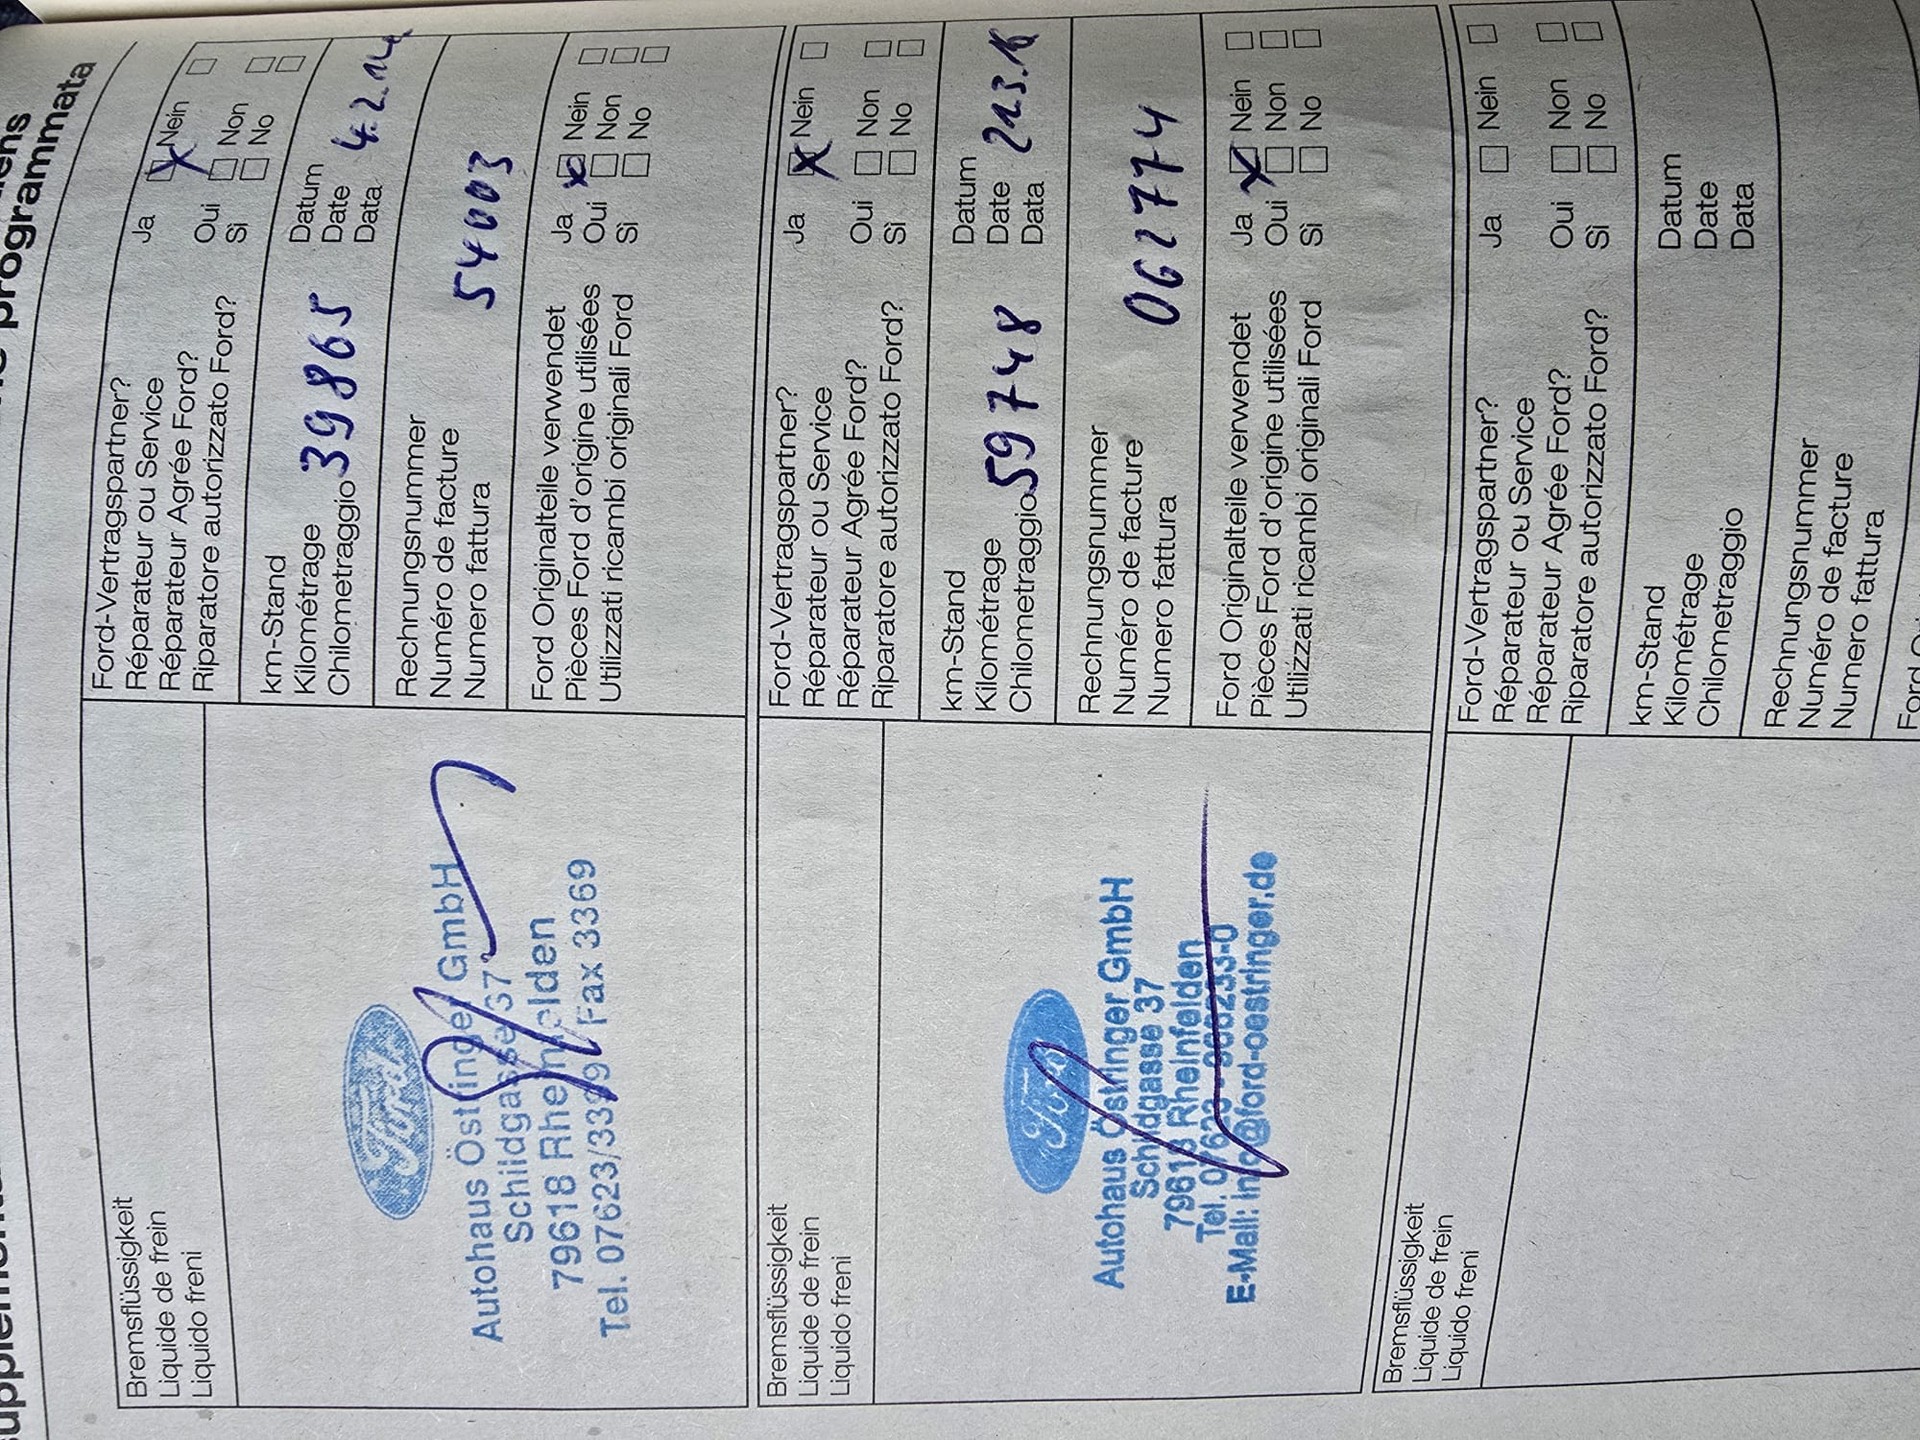 programmata
Bremsflüssigkeit
Liquide de frein
Liquido freni
Ford
Autohaus Östringer GmbH
Schildgasse 37
79618 Rheinfelden
Tel. 07623/3399 Fax 3369
Ford-Vertragspartner?
Réparateur ou Service
Réparateur Agrée Ford?
Riparatore autorizzato Ford?
Ja Nein
Oui Non
Sì No
km-Stand
Kilométrage
Chilometraggio 39865
Datum
Date 4.2.14
Data
Rechnungsnummer
Numéro de facture
Numero fattura
54003
Ford Originalteile verwendet
Pièces Ford d'origine utilisées
Utilizzati ricambi originali Ford
Ja Nein
Oui Non
Sì No
Bremsflüssigkeit
Liquide de frein
Liquido freni
Ford
Autohaus Östringer GmbH
Schildgasse 37
79618 Rheinfelden
E-Mail: info@ford-oestringer.de
Ford-Vertragspartner?
Réparateur ou Service
Réparateur Agrée Ford?
Riparatore autorizzato Ford?
Ja Nein
Oui Non
Sì No
km-Stand
Kilométrage
Chilometraggio 59748
Datum
Date
Data
Rechnungsnummer
Numéro de facture
Numero fattura
062774
Ford Originalteile verwendet
Pièces Ford d'origine utilisées
Utilizzati ricambi originali Ford
Ja Nein
Oui Non
Sì No
Bremsflüssigkeit
Liquide de frein
Liquido freni
Ford-Vertragspartner?
Réparateur ou Service
Réparateur Agrée Ford?
Riparatore autorizzato Ford?
Ja Nein
Oui Non
Sì No
km-Stand
Kilométrage
Chilometraggio
Datum
Date
Data
Rechnungsnummer
Numéro de facture
Numero fattura
Ford